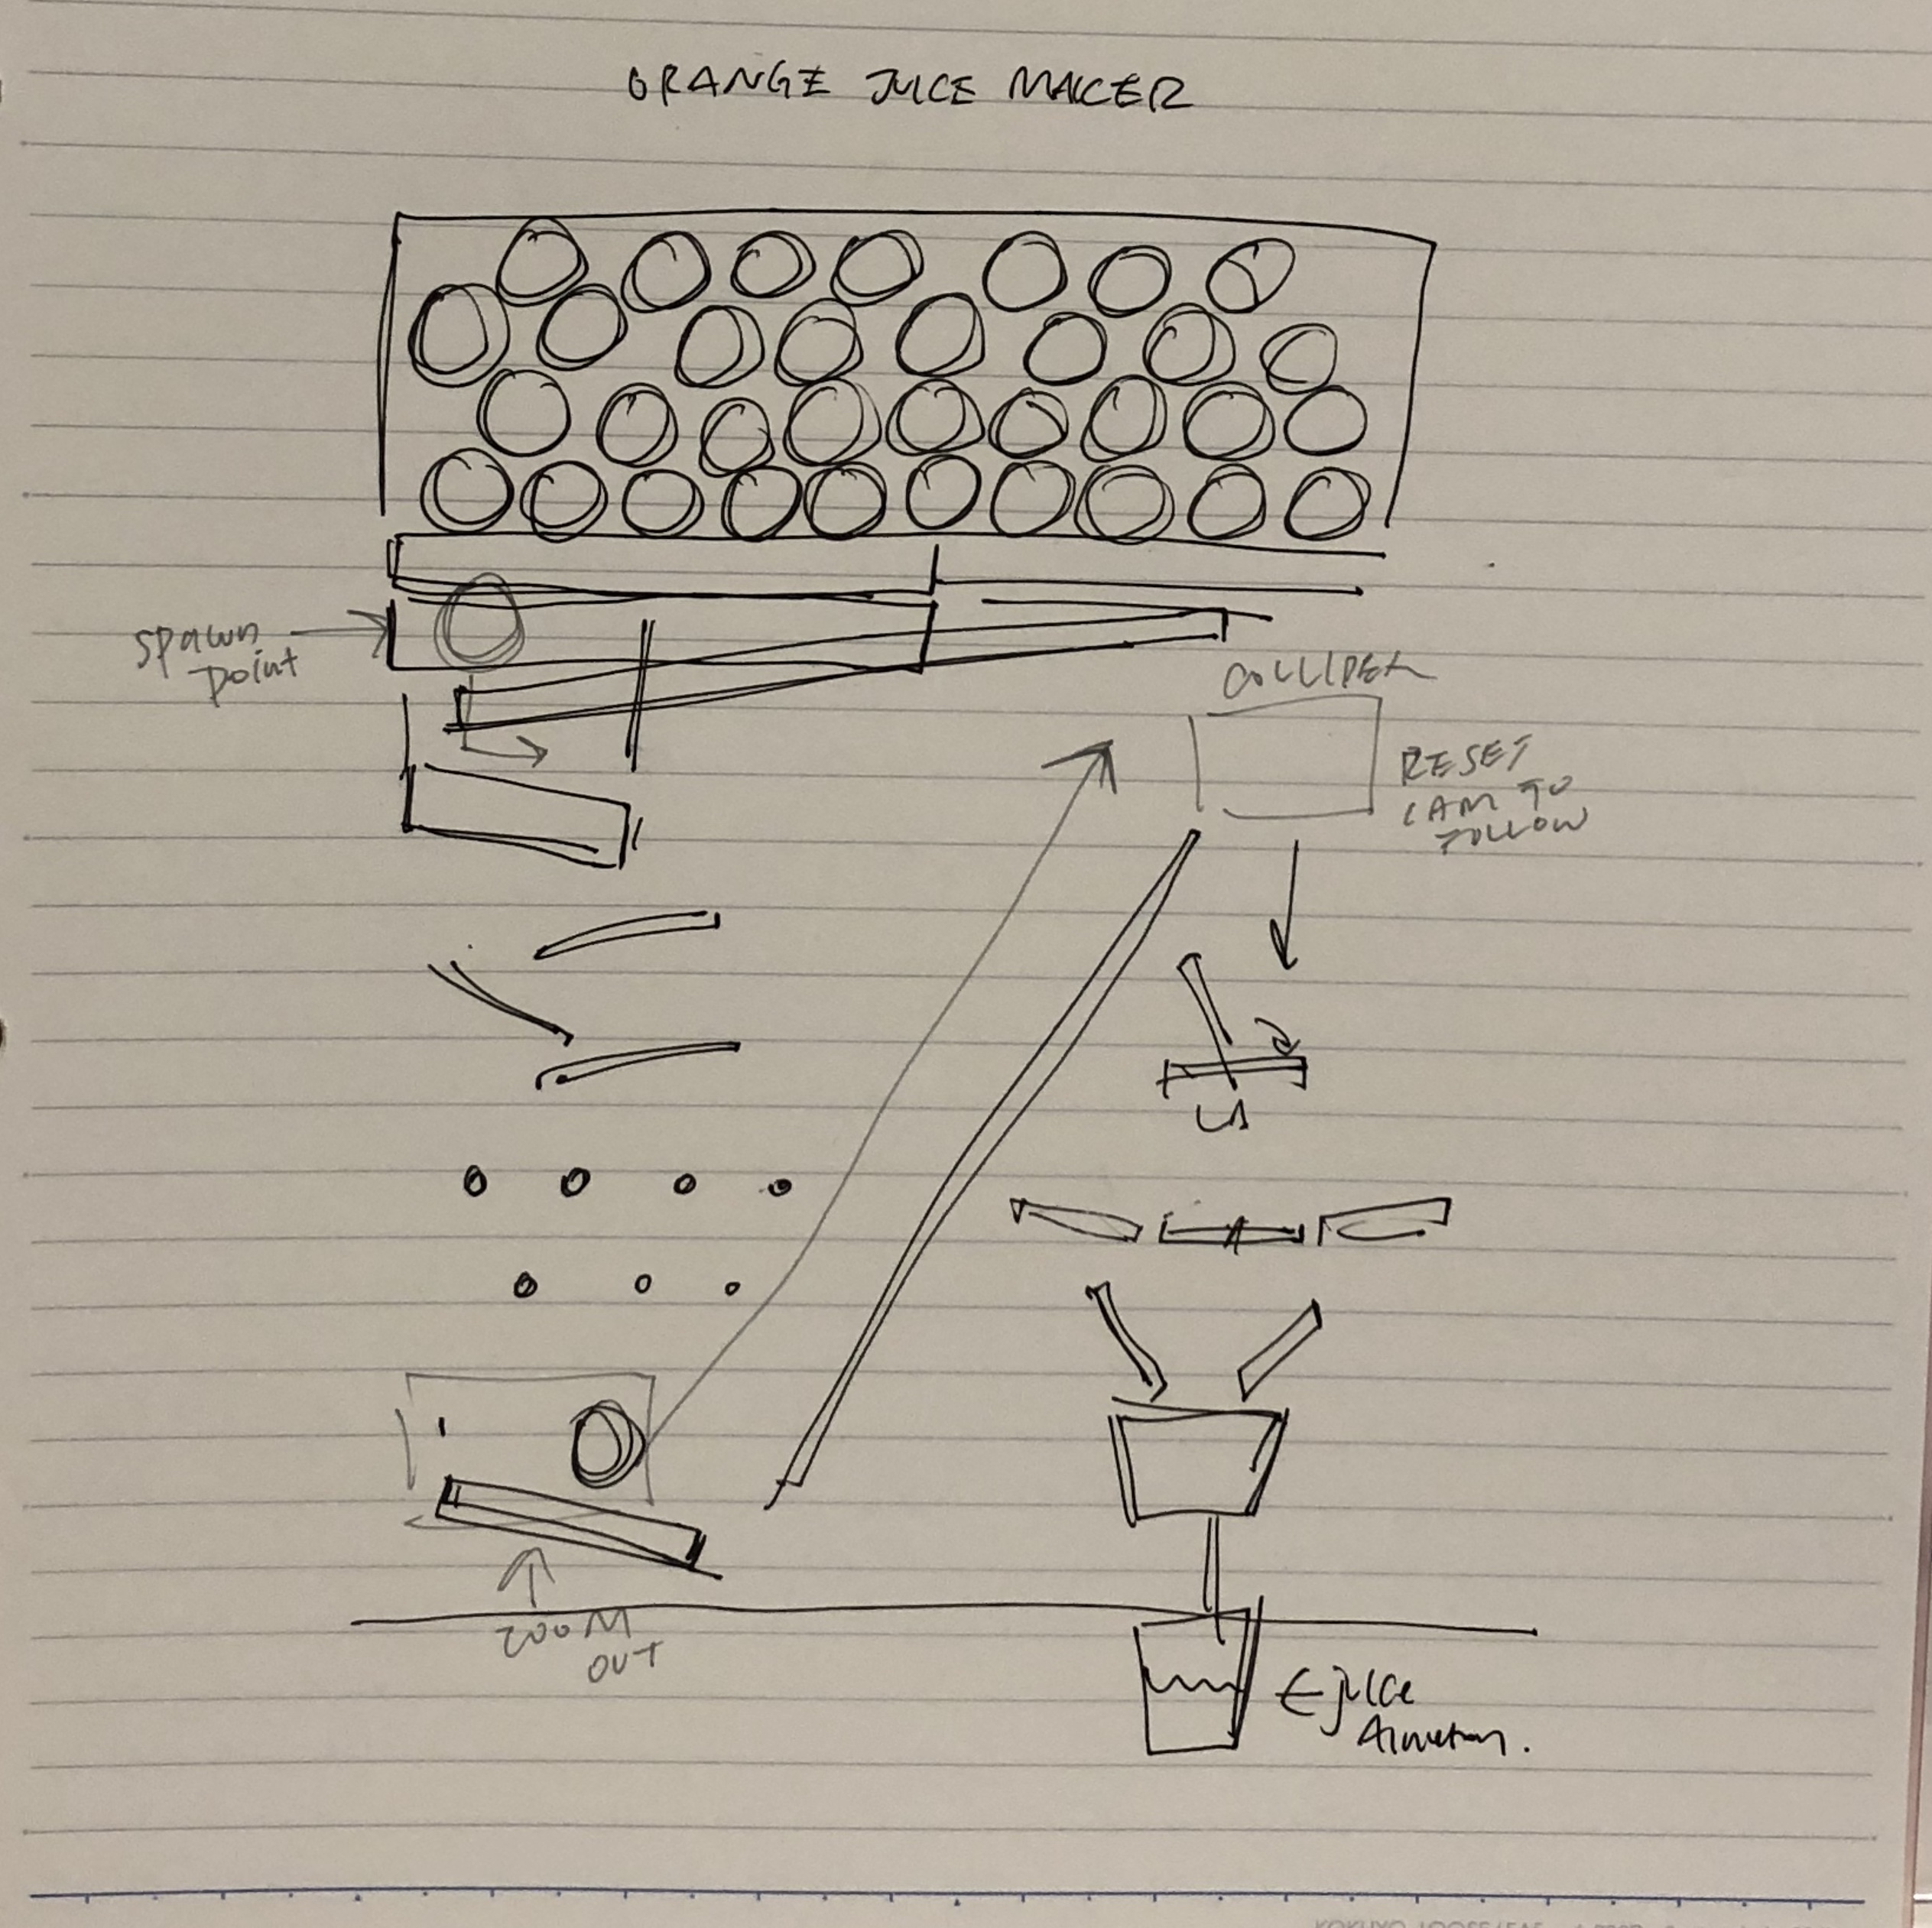 ORANGE JUICE MAKER
spawn
point
COLLIDER
RESET
CAM TO
FOLLOW
ZOOM
OUT
juice